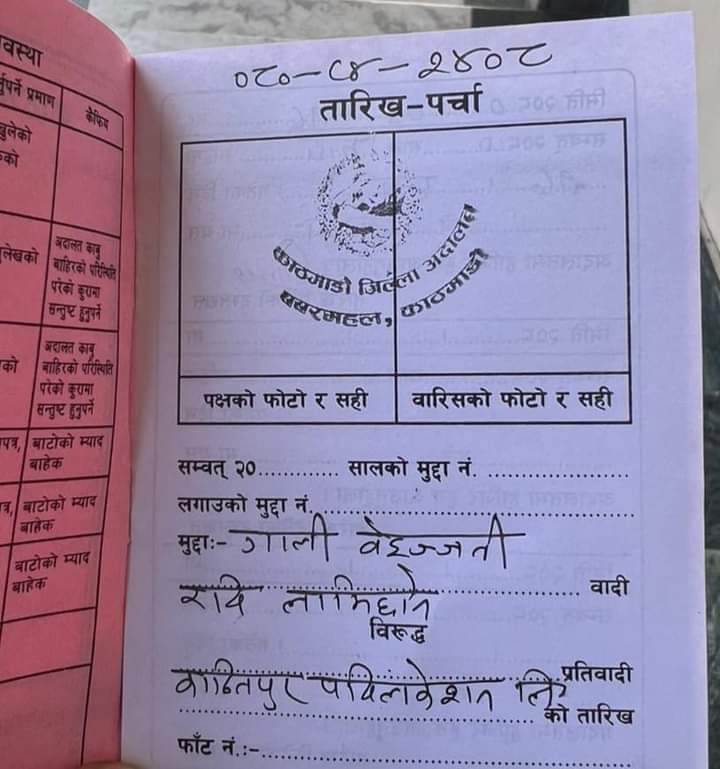 वस्था
र्नुपर्ने प्रमाण
कैफियत
खुलेको
को
लेखको
अदालत काबु
बाहिरको परिस्थिति
परेको कुरामा
सन्तुष्ट हुनुपर्ने
को
अदालत काबु
बाहिरको परिस्थिति
परेको कुरामा
सन्तुष्ट हुनुपर्ने
पत्र,
बाटोको म्याद
बाहेक
त्र,
बाटोको म्याद
बाहेक
बाटोको म्याद
बाहेक
०८०-८४-२४०८
तारिख-पर्चा
काठमाडौं जिल्ला अदालत
बबरमहल, काठमाडौं
पक्षको फोटो र सही
वारिसको फोटो र सही
सम्वत् २०............ सालको मुद्दा नं.
लगाउको मुद्दा नं.
मुद्दा:- गाली बेइज्जती
रवि लामिछाने वादी
विरूद्ध
कान्तिपुर पब्लिकेशन लि प्रतिवादी
को तारिख
फाँट नं.:-